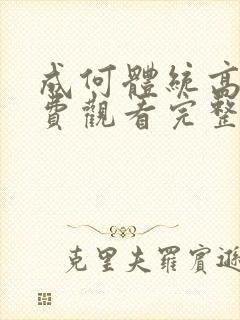 成何體統高
費觀看完整
克里夫羅賓遜